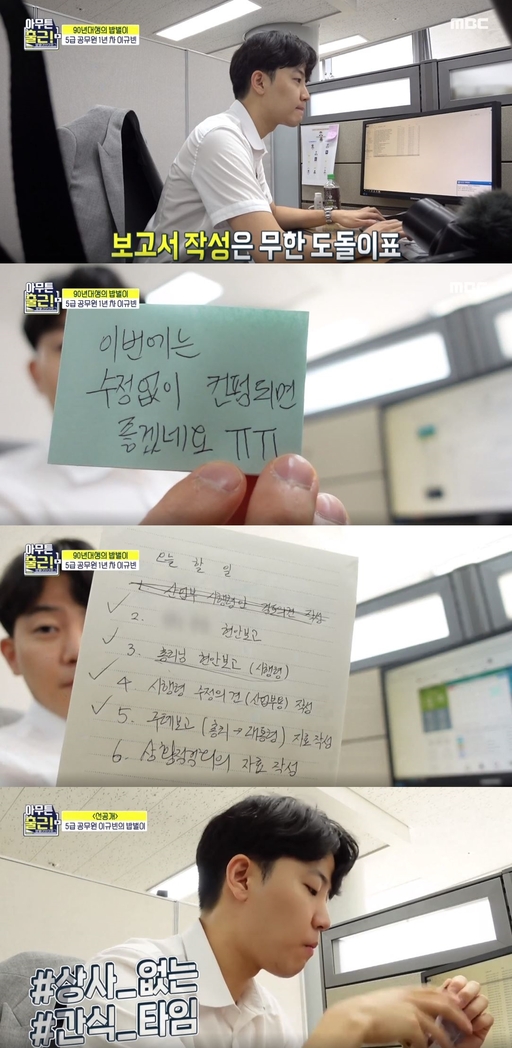 아무튼
출근!
90년대생의 밥벌이
5급 공무원 1년 차 이규빈
MBC
보고서 작성은 무한 도돌이표
아무튼
출근!
90년대생의 밥벌이
5급 공무원 1년 차 이규빈
MBC
이번에는
수정없이 컨펌되면
좋겠네요 ㅠㅠ
아무튼
출근!
90년대생의 밥벌이
5급 공무원 1년 차 이규빈
오늘 할 일
1. 산업부 시행령안 검토의견 작성
2.
현안보고
3. 총리님 현안보고 (시행령)
4. 시행령 수정의견 (산업부등) 작성
5. 주례보고 (총리→대통령) 자료 작성
6. 자료 작성
아무튼
출근!
<선공개>
5급 공무원 이규빈의 밥벌이
#상사_없는
#간식_타임